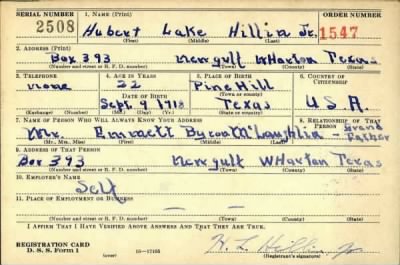 SERIAL NUMBER 1. NAME (Print) ORDER NUMBER
2508 Hubert Lake Hillin Jr. 1547
(First) (Middle) (Last)
2. ADDRESS (Print)
Box 393 Nerygult WHarton Texas
(Number and street or R. F. D. number) (Town) (County) (State)
3. TELEPHONE 4. AGE IN YEARS 5. PLACE OF BIRTH 6. COUNTRY OF CITIZENSHIP
none 22 Pine Hill
DATE OF BIRTH (Town or county)
Sept 9 1918 Texas U S A.
(Exchange) (Number) (Mo.) (Day) (Yr.) (State or country)
7. NAME OF PERSON WHO WILL ALWAYS KNOW YOUR ADDRESS 8. RELATIONSHIP OF THAT PERSON
Mr. Emmett Byron McLaughlin - Grand Father
(Mr., Mrs., Miss) (First) (Middle) (Last)
9. ADDRESS OF THAT PERSON
Box 393 Nerygult WHarton Texas
(Number and street or R. F. D. number) (Town) (County) (State)
10. EMPLOYER'S NAME
Self
11. PLACE OF EMPLOYMENT OR BUSINESS
— —
(Number and street or R. F. D. number) (Town) (County) (State)
I AFFIRM THAT I HAVE VERIFIED ABOVE ANSWERS AND THAT THEY ARE TRUE.
REGISTRATION CARD
D. S. S. Form 1 (over) 16-17105 H. L. Hillin Jr.
(Registrant's signature)